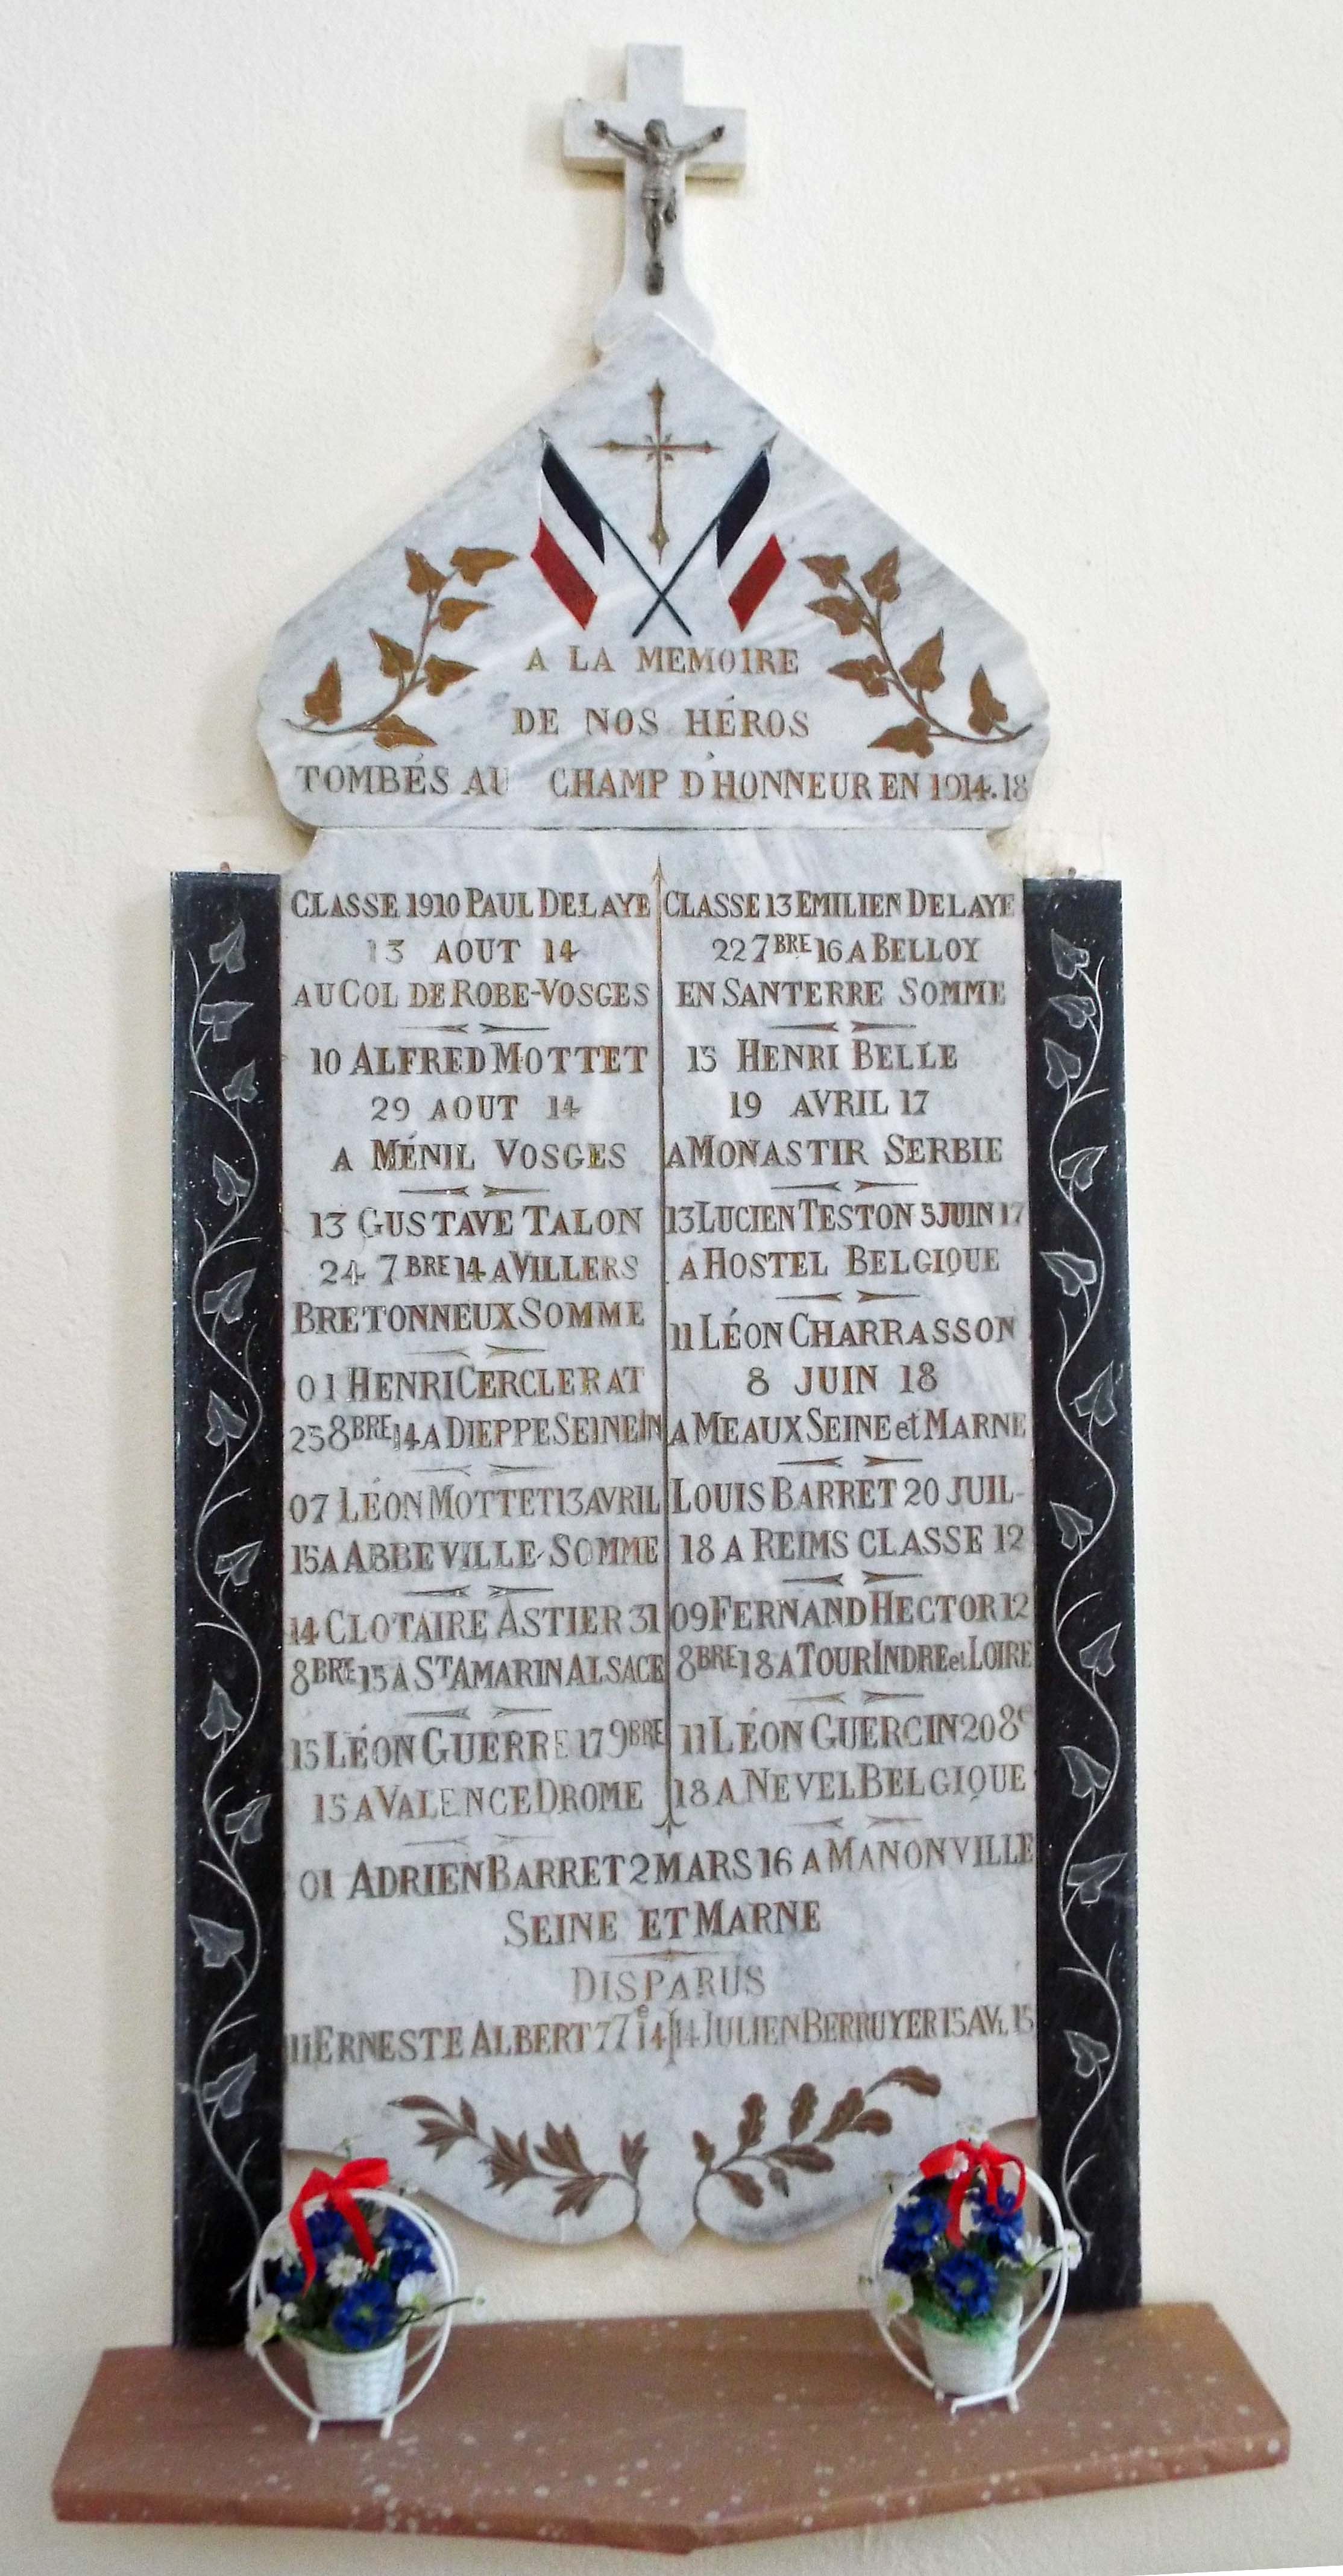 A LA MEMOIRE
DE NOS HÉROS
TOMBÉS AU CHAMP D'HONNEUR EN 1914.18
CLASSE 1910 PAUL DELAYE
13 AOUT 14
AU COL DE ROBE-VOSGES
10 ALFRED MOTTET
29 AOUT 14
A MÉNIL VOSGES
13 GUSTAVE TALON
24 7BRE 14 A VILLERS
BRETONNEUX SOMME
01 HENRI CERCLERAT
23 8BRE 14 A DIEPPE SEINE IN
07 LÉON MOTTET 13 AVRIL
15 A ABBEVILLE-SOMME
14 CLOTAIRE ASTIER 31
8BRE 15 A ST AMARIN ALSACE
15 LÉON GUERRE 17 9BRE
15 A VALENCE DROME
CLASSE 13 EMILIEN DELAYE
22 7BRE 16 A BELLOY
EN SANTERRE SOMME
15 HENRI BELLE
19 AVRIL 17
A MONASTIR SERBIE
13 LUCIEN TESTON 5 JUIN 17
A HOSTEL BELGIQUE
11 LÉON CHARRASSON
8 JUIN 18
A MEAUX SEINE et MARNE
LOUIS BARRET 20 JUIL-
18 A REIMS CLASSE 12
09 FERNAND HECTOR 12
8BRE 18 A TOUR INDRE et LOIRE
11 LÉON GUERCIN 20 8e
18 A NEVEL BELGIQUE
01 ADRIEN BARRET 2 MARS 16 A MANONVILLE
SEINE ET MARNE
DISPARUS
11 ERNESTE ALBERT 7 7e 14 14 JULIEN BERRUYER 15 AVL 15